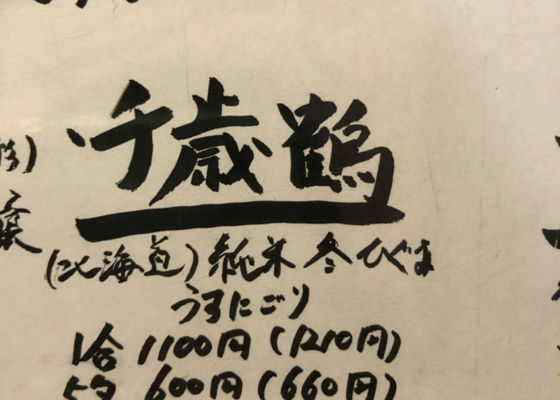 千歳鶴
(北海道) 純米 冬ひぐま
うすにごり
1合 1100円 (1210円)
600円 (660円)